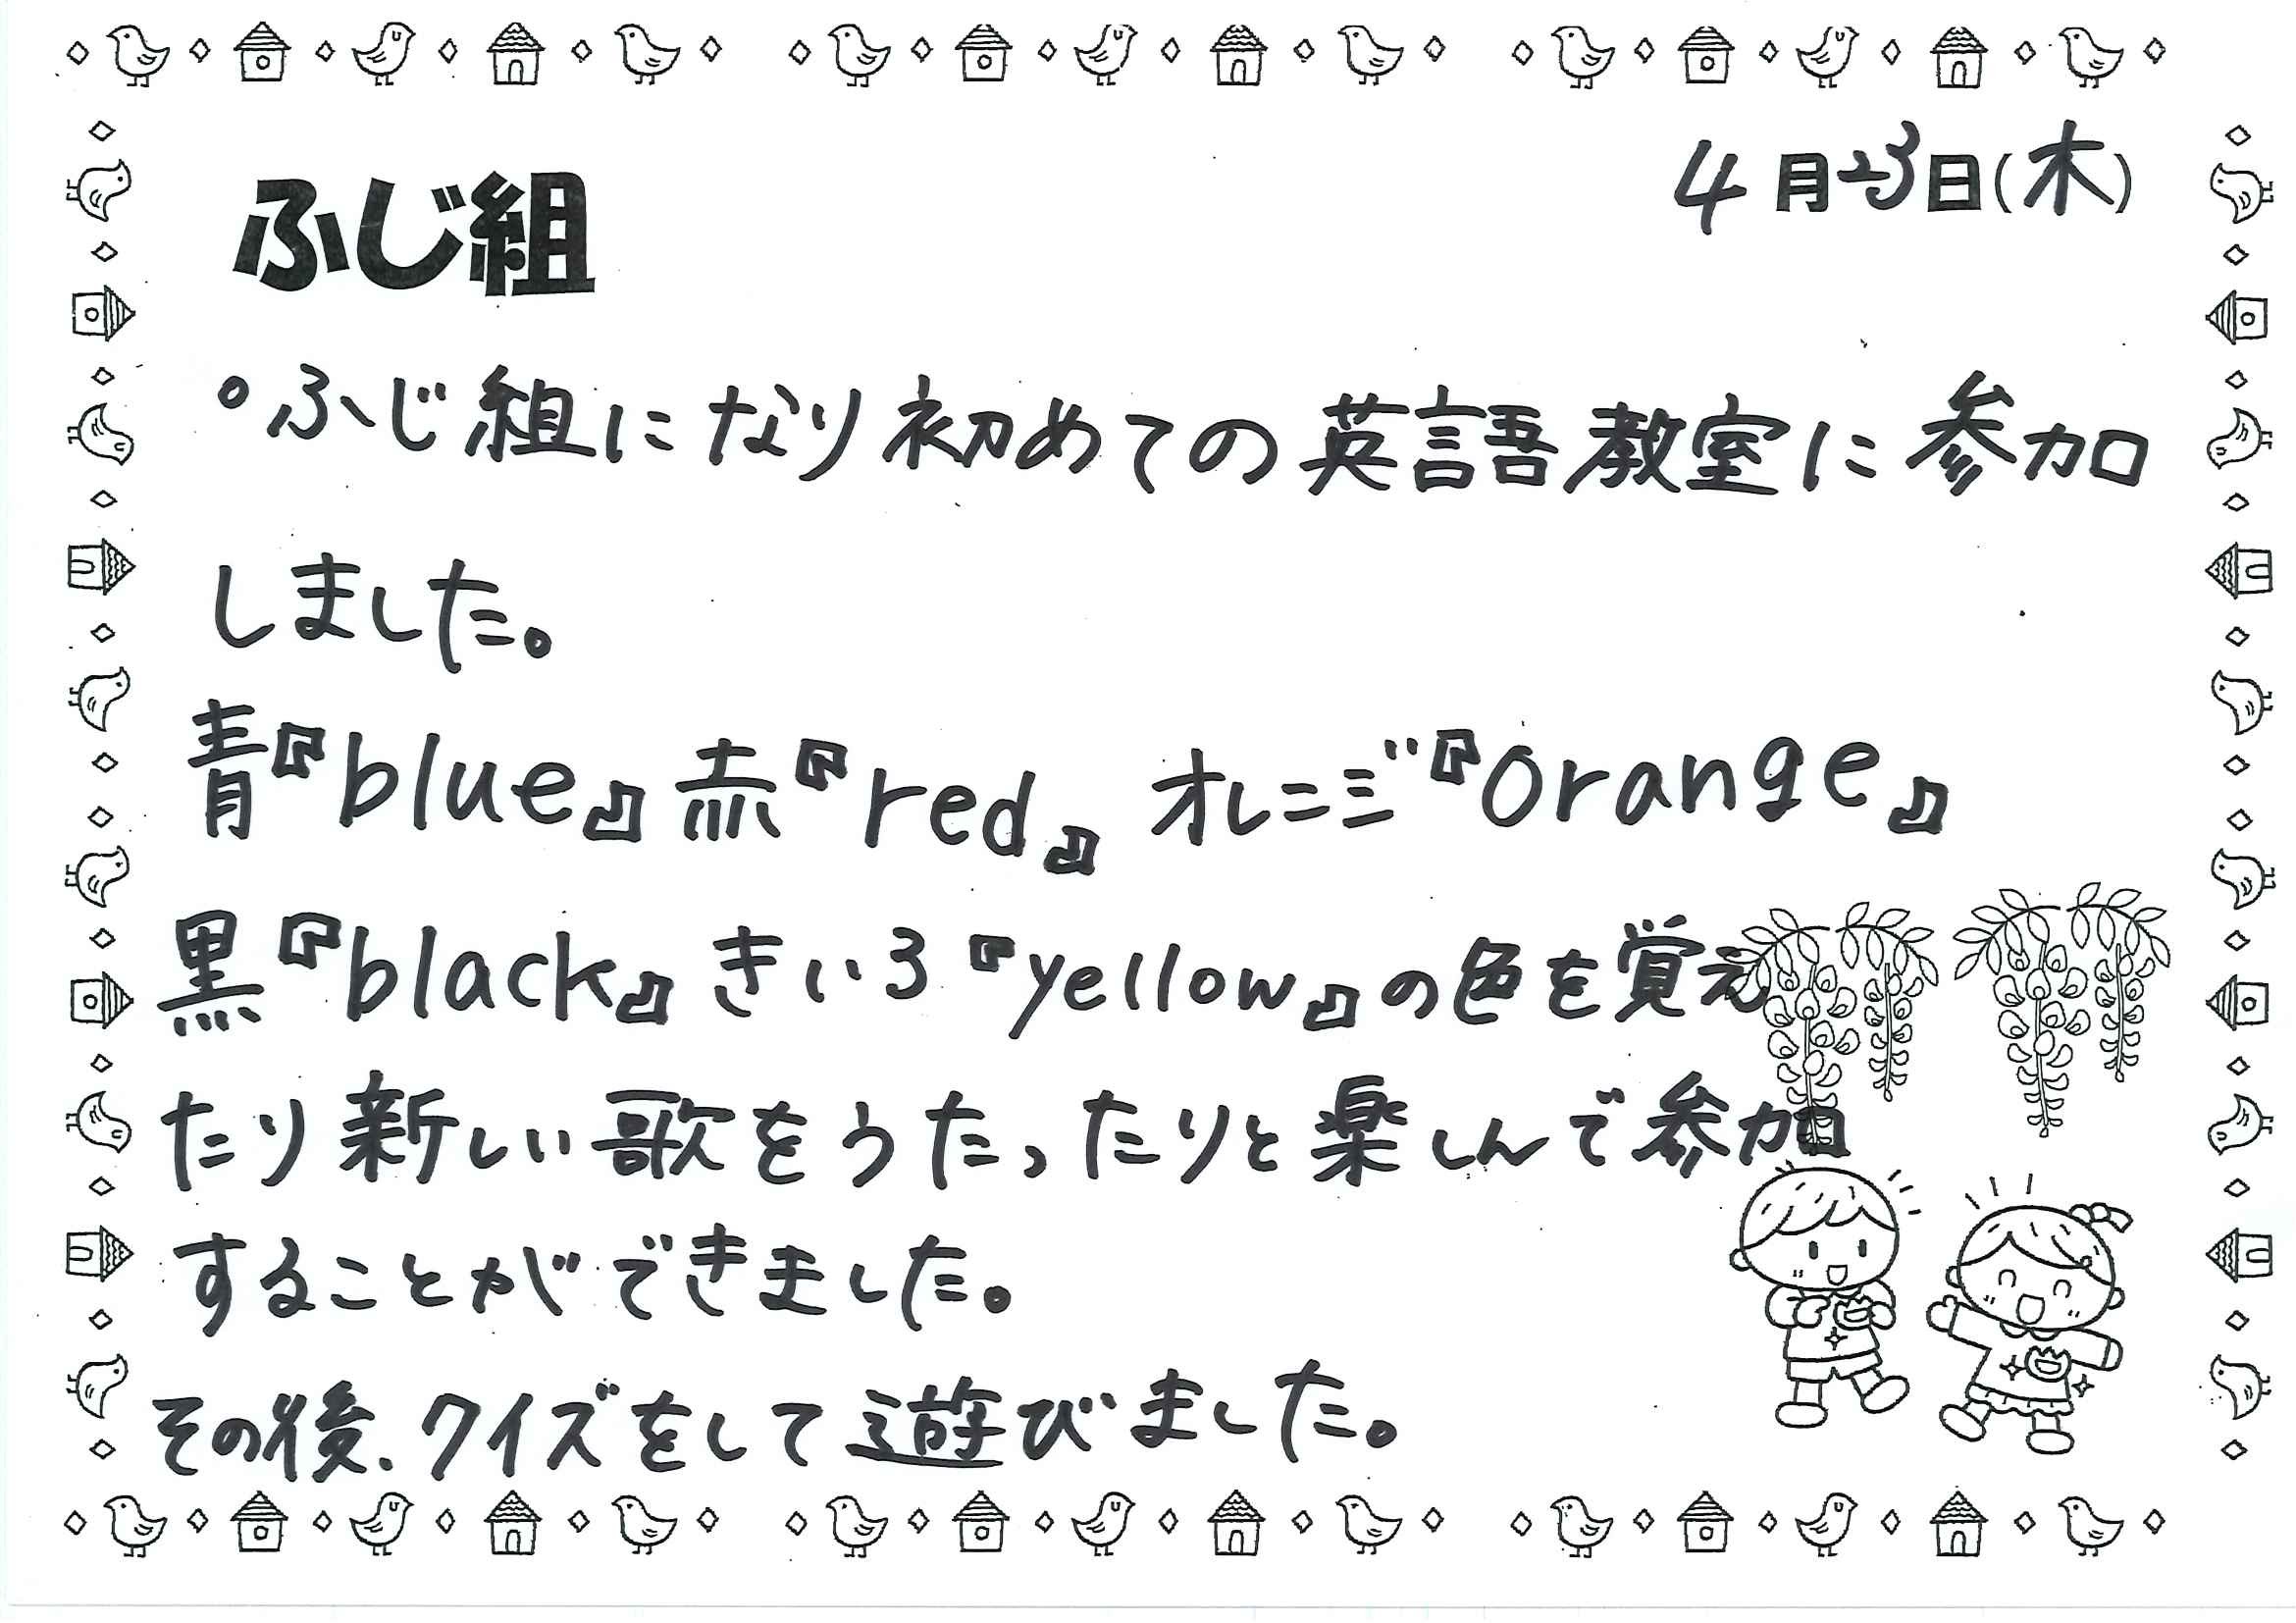 4月23日(木)
ふじ組
°ふじ組になり初めての英語教室に参加
しました。
青『blue』赤『red』オレンジ『orange』
黒『black』きいろ『yellow』の色を覚え
たり新しい歌をうたったりと楽しんで参加
することができました。
その後、クイズをして遊びました。